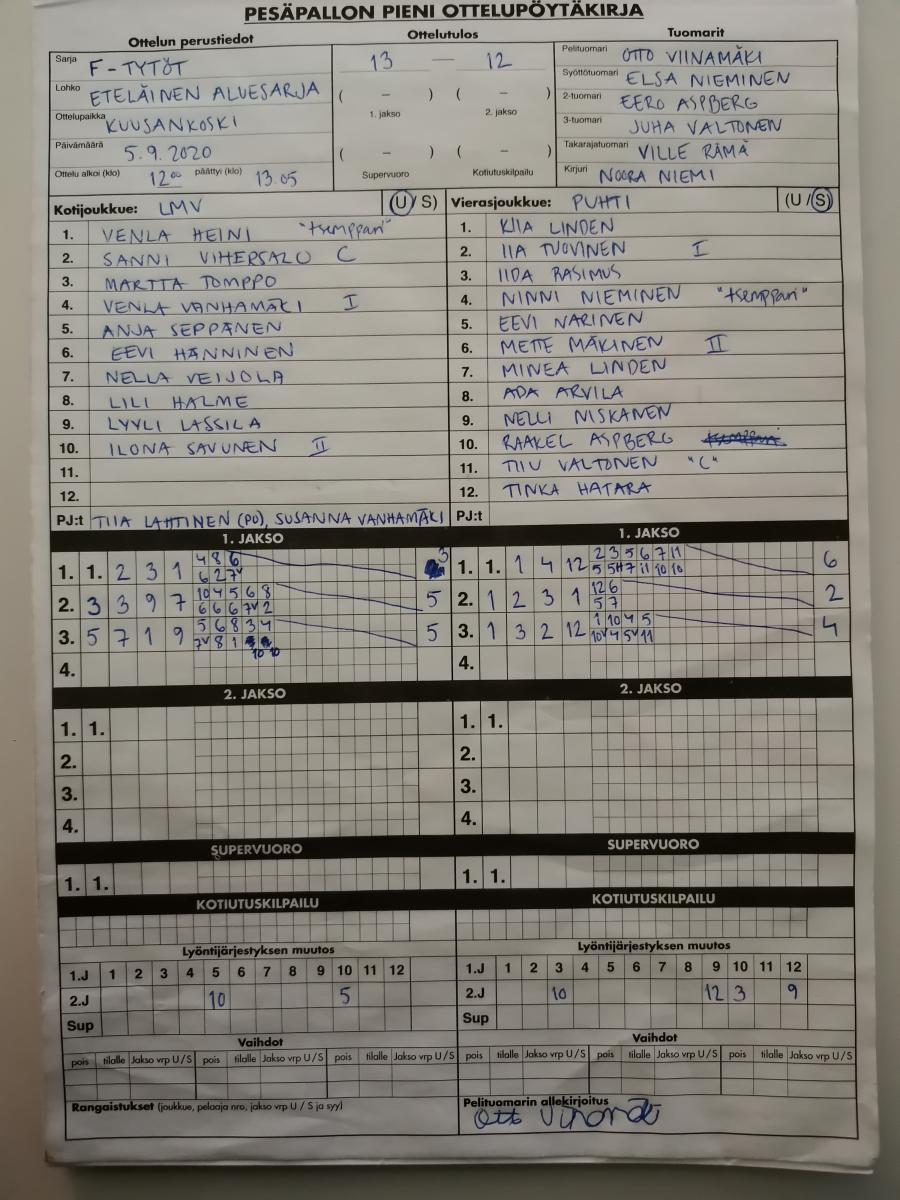 PESÄPALLON PIENI OTTELUPÖYTÄKIRJA
Ottelun perustiedot
Sarja F-TYTÖT
Lohko ETELÄINEN ALUESARJA
Ottelupaikka KUUSANKOSKI
Päivämäärä 5.9.2020
Ottelu alkoi (klo) 12 00 päättyi (klo) 13.05
Ottelutulos
13 — 12
( – ) ( – )
1. jakso 2. jakso
( – ) ( – )
Supervuoro Kotiutuskilpailu
Tuomarit
Pelituomari OTTO VIINAMÄKI
Syöttötuomari ELSA NIEMINEN
2-tuomari EERO ASPBERG
3-tuomari JUHA VALTONEN
Takarajatuomari VILLE RÄMÄ
Kirjuri NOORA NIEMI
Kotijoukkue: LMV (U/S)
1. VENLA HEINI "tsemppari"
2. SANNI VIHERSALO C
3. MARTTA TOMPPO
4. VENLA VANHAMÄKI I
5. ANJA SEPPÄNEN
6. EEVI HÄNNINEN
7. NELLA VEIJOLA
8. LILI HALME
9. LYYLI LASSILA
10. ILONA SAVUNEN II
11.
12.
PJ:t TIIA LAHTINEN (PJ), SUSANNA VANHAMÄKI
Vierasjoukkue: PUHTI (U/S)
1. KIIA LINDEN
2. IIA TUOVINEN I
3. IIDA RASIMUS
4. NINNI NIEMINEN "tsemppari"
5. EEVI NARINEN
6. METTE MÄKINEN II
7. MINEA LINDEN
8. ADA ARVILA
9. NELLI NISKANEN
10. RAAKEL ASPBERG
11. TIIU VALTONEN "C"
12. TINKA HATARA
PJ:t
1. JAKSO
1. 1. 2 3 1 4 8 6 3
6 2 7v
2. 3 3 9 7 10 4 5 6 8 5
6 6 6 7v 2
3. 5 7 1 9 5 6 8 3 4 5
7v 8 1 10 10
4.
1. JAKSO
1. 1. 1 4 12 2 3 5 6 7 11 6
5 5 7 11 10 10
2. 1 2 3 1 12 6 2
5 7
3. 1 3 2 12 1 10 4 5 4
10v 4 5v 11
4.
2. JAKSO
1. 1.
2.
3.
4.
2. JAKSO
1. 1.
2.
3.
4.
SUPERVUORO
1. 1.
SUPERVUORO
1. 1.
KOTIUTUSKILPAILU
KOTIUTUSKILPAILU
Lyöntijärjestyksen muutos
1.J 1 2 3 4 5 6 7 8 9 10 11 12
2.J 10 5
Sup
Lyöntijärjestyksen muutos
1.J 1 2 3 4 5 6 7 8 9 10 11 12
2.J 10 12 3 9
Sup
Vaihdot
pois tilalle Jakso vrp U / S pois tilalle Jakso vrp U / S pois tilalle Jakso vrp U / S
Vaihdot
pois tilalle Jakso vrp U / S pois tilalle Jakso vrp U / S pois tilalle Jakso vrp U / S
Rangaistukset (joukkue, pelaaja nro, jakso vrp U / S ja syy)
Pelituomarin allekirjoitus